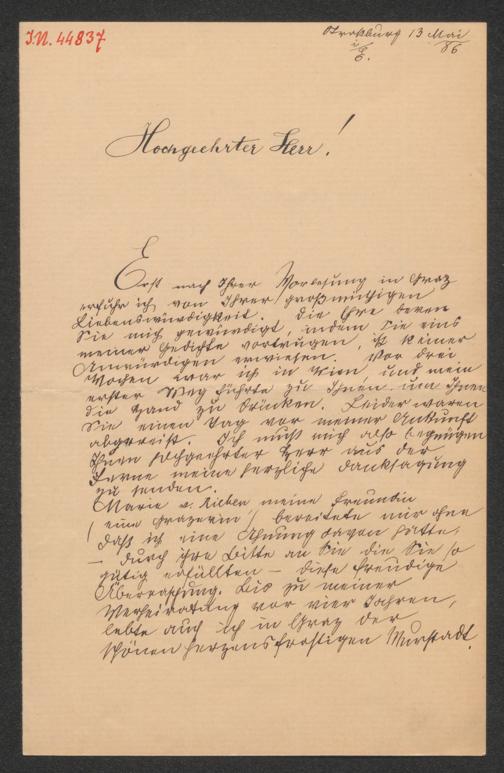 I.N. 44837
Straßburg 13 Mai
i/E. 86
Hochgeehrter Herr!
Erst nach Ihrer Vorlesung in Graz
erfuhr ich von Ihrer großmüthigen
Liebenswürdigkeit. Die Ehre deren
Sie mich gewürdigt, indem Sie eins
meiner Gedichte vortrugen, ist keiner
Unwürdigen erwiesen. Vor drei
Wochen war ich in Wien, und mein
erster Weg führte zu Ihnen um Ihnen
die Hand zu drücken. Leider waren
Sie einen Tag vor meiner Ankunft
abgereist. Ich muß mich also begnügen
Ihnen hochgeehrter Herr aus der
Ferne meine herzliche Danksagung
zu senden.
Marie v. meine Freundin
(eine Grazerin) bereitete mir ohne
daß ich eine Ahnung davon hatte,
– durch ihre Bitte an Sie die Sie so
gütig erfüllten – diese freudige
Überraschung. Bis zu meiner
Verheiratung vor vier Jahren,
lebte auch ich in Graz der
schönen herzensfrostigen Murstadt.